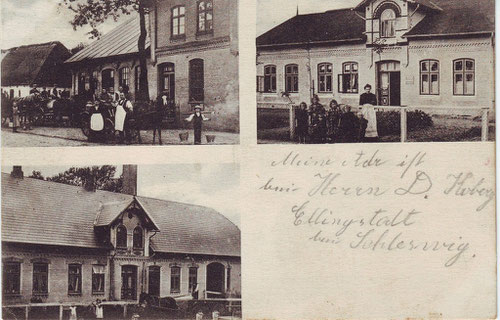 Meine Adr ist
bei Herrn D.
Ellingstedt
bei Schleswig.